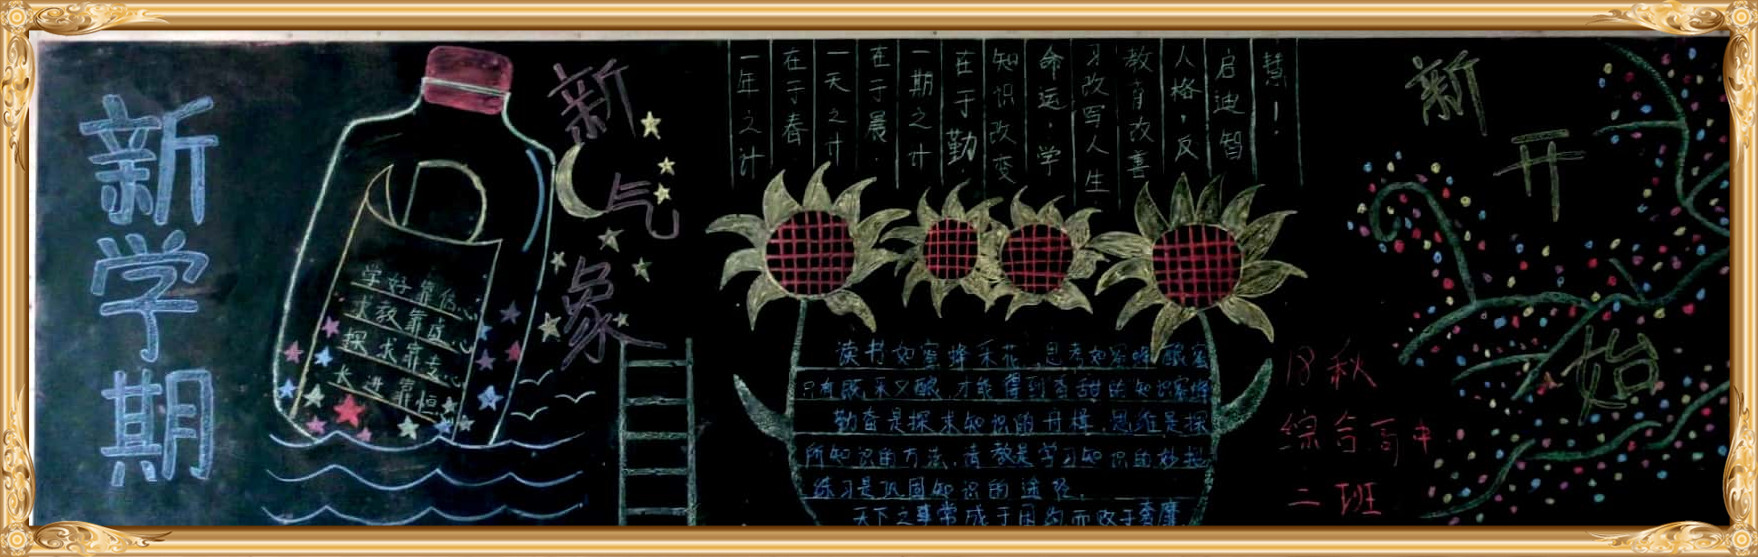 新学期
新气象
学好靠信心
求教靠虚心
探求靠专心
长进靠恒心
一年之计
在于春，
一天之计
在于晨，
一期之计
在于勤，
知识改变
命运，学
习改写人
生
教育改善
人格，反
启迪智
慧！
读书如蜜蜂采花，思考如蜜蜂酿蜜
只有既采又酿，才能得到香甜的知识蜜糖
勤奋是探求知识的舟楫，思维是探
所知识的方法，请教是学习知识的妙招
练习是巩固知识的途径，
天下之事常成于困约而败于奢靡，
新开始
18秋
综合高中
二班